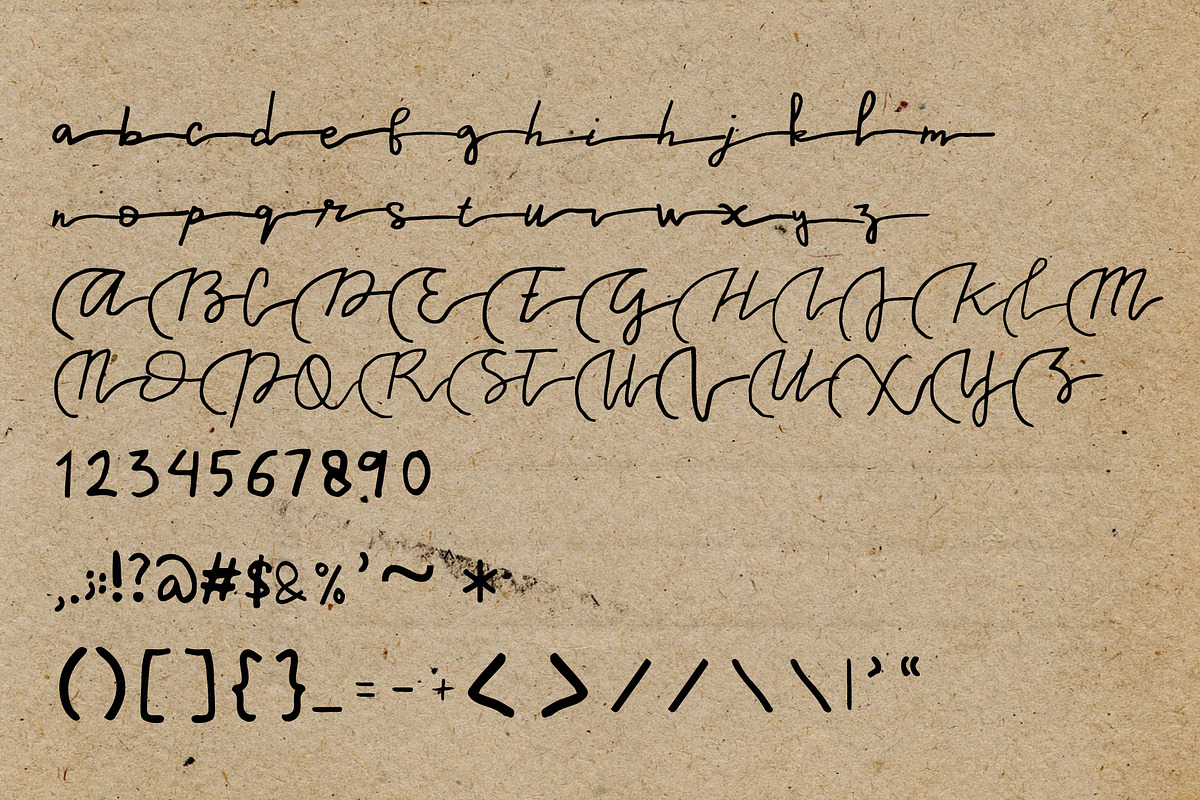 abcdefghihjklm
nopqrstuvwxyz
ABCDEFGHIJKLM
NOPQRSTUVWXYZ
1234567890
,.;:!?@#$&%’~ *
()[]{}_=-+<>//\\|’“